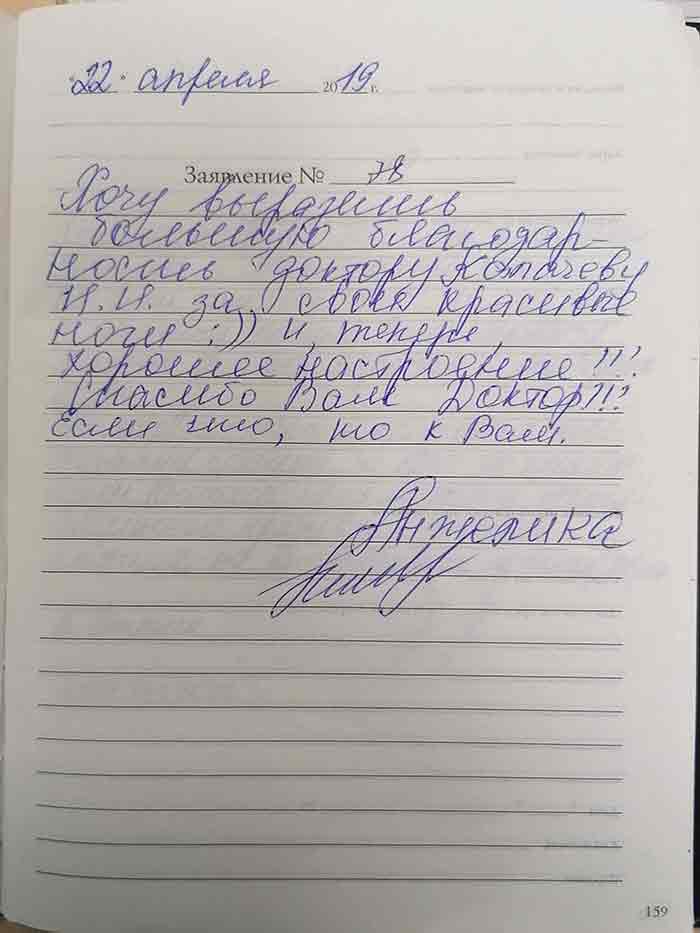 "22" апреля 2019 г.
Заявление № 78
Хочу выразить
большую благодар-
ность доктору Калачеву
Н.Н. за свои красивые
ночи :)) и, теперь,
хорошее настроение !!!
Спасибо Вам Доктор!!!
Если что, то к Вам.
Анжелика
159